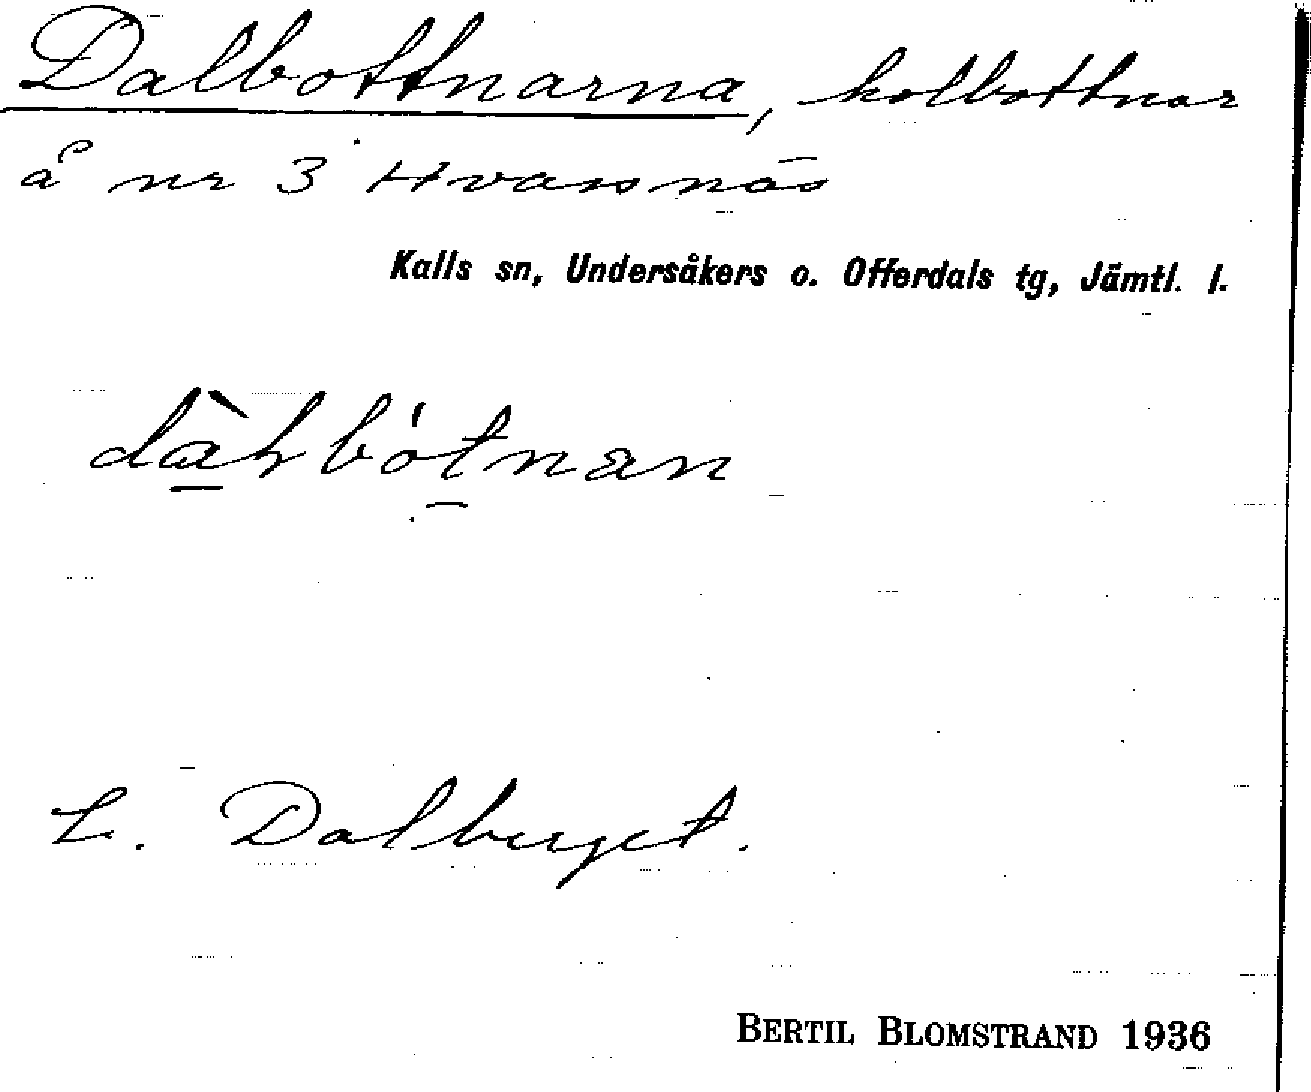 Dalbottnarna, kolbottnar
å nr 3 Hvassnäs
Kalls sn, Undersåkers o. Offerdals tg, Jämtl. l.
L. Dalberget.
BERTIL BLOMSTRAND 1936